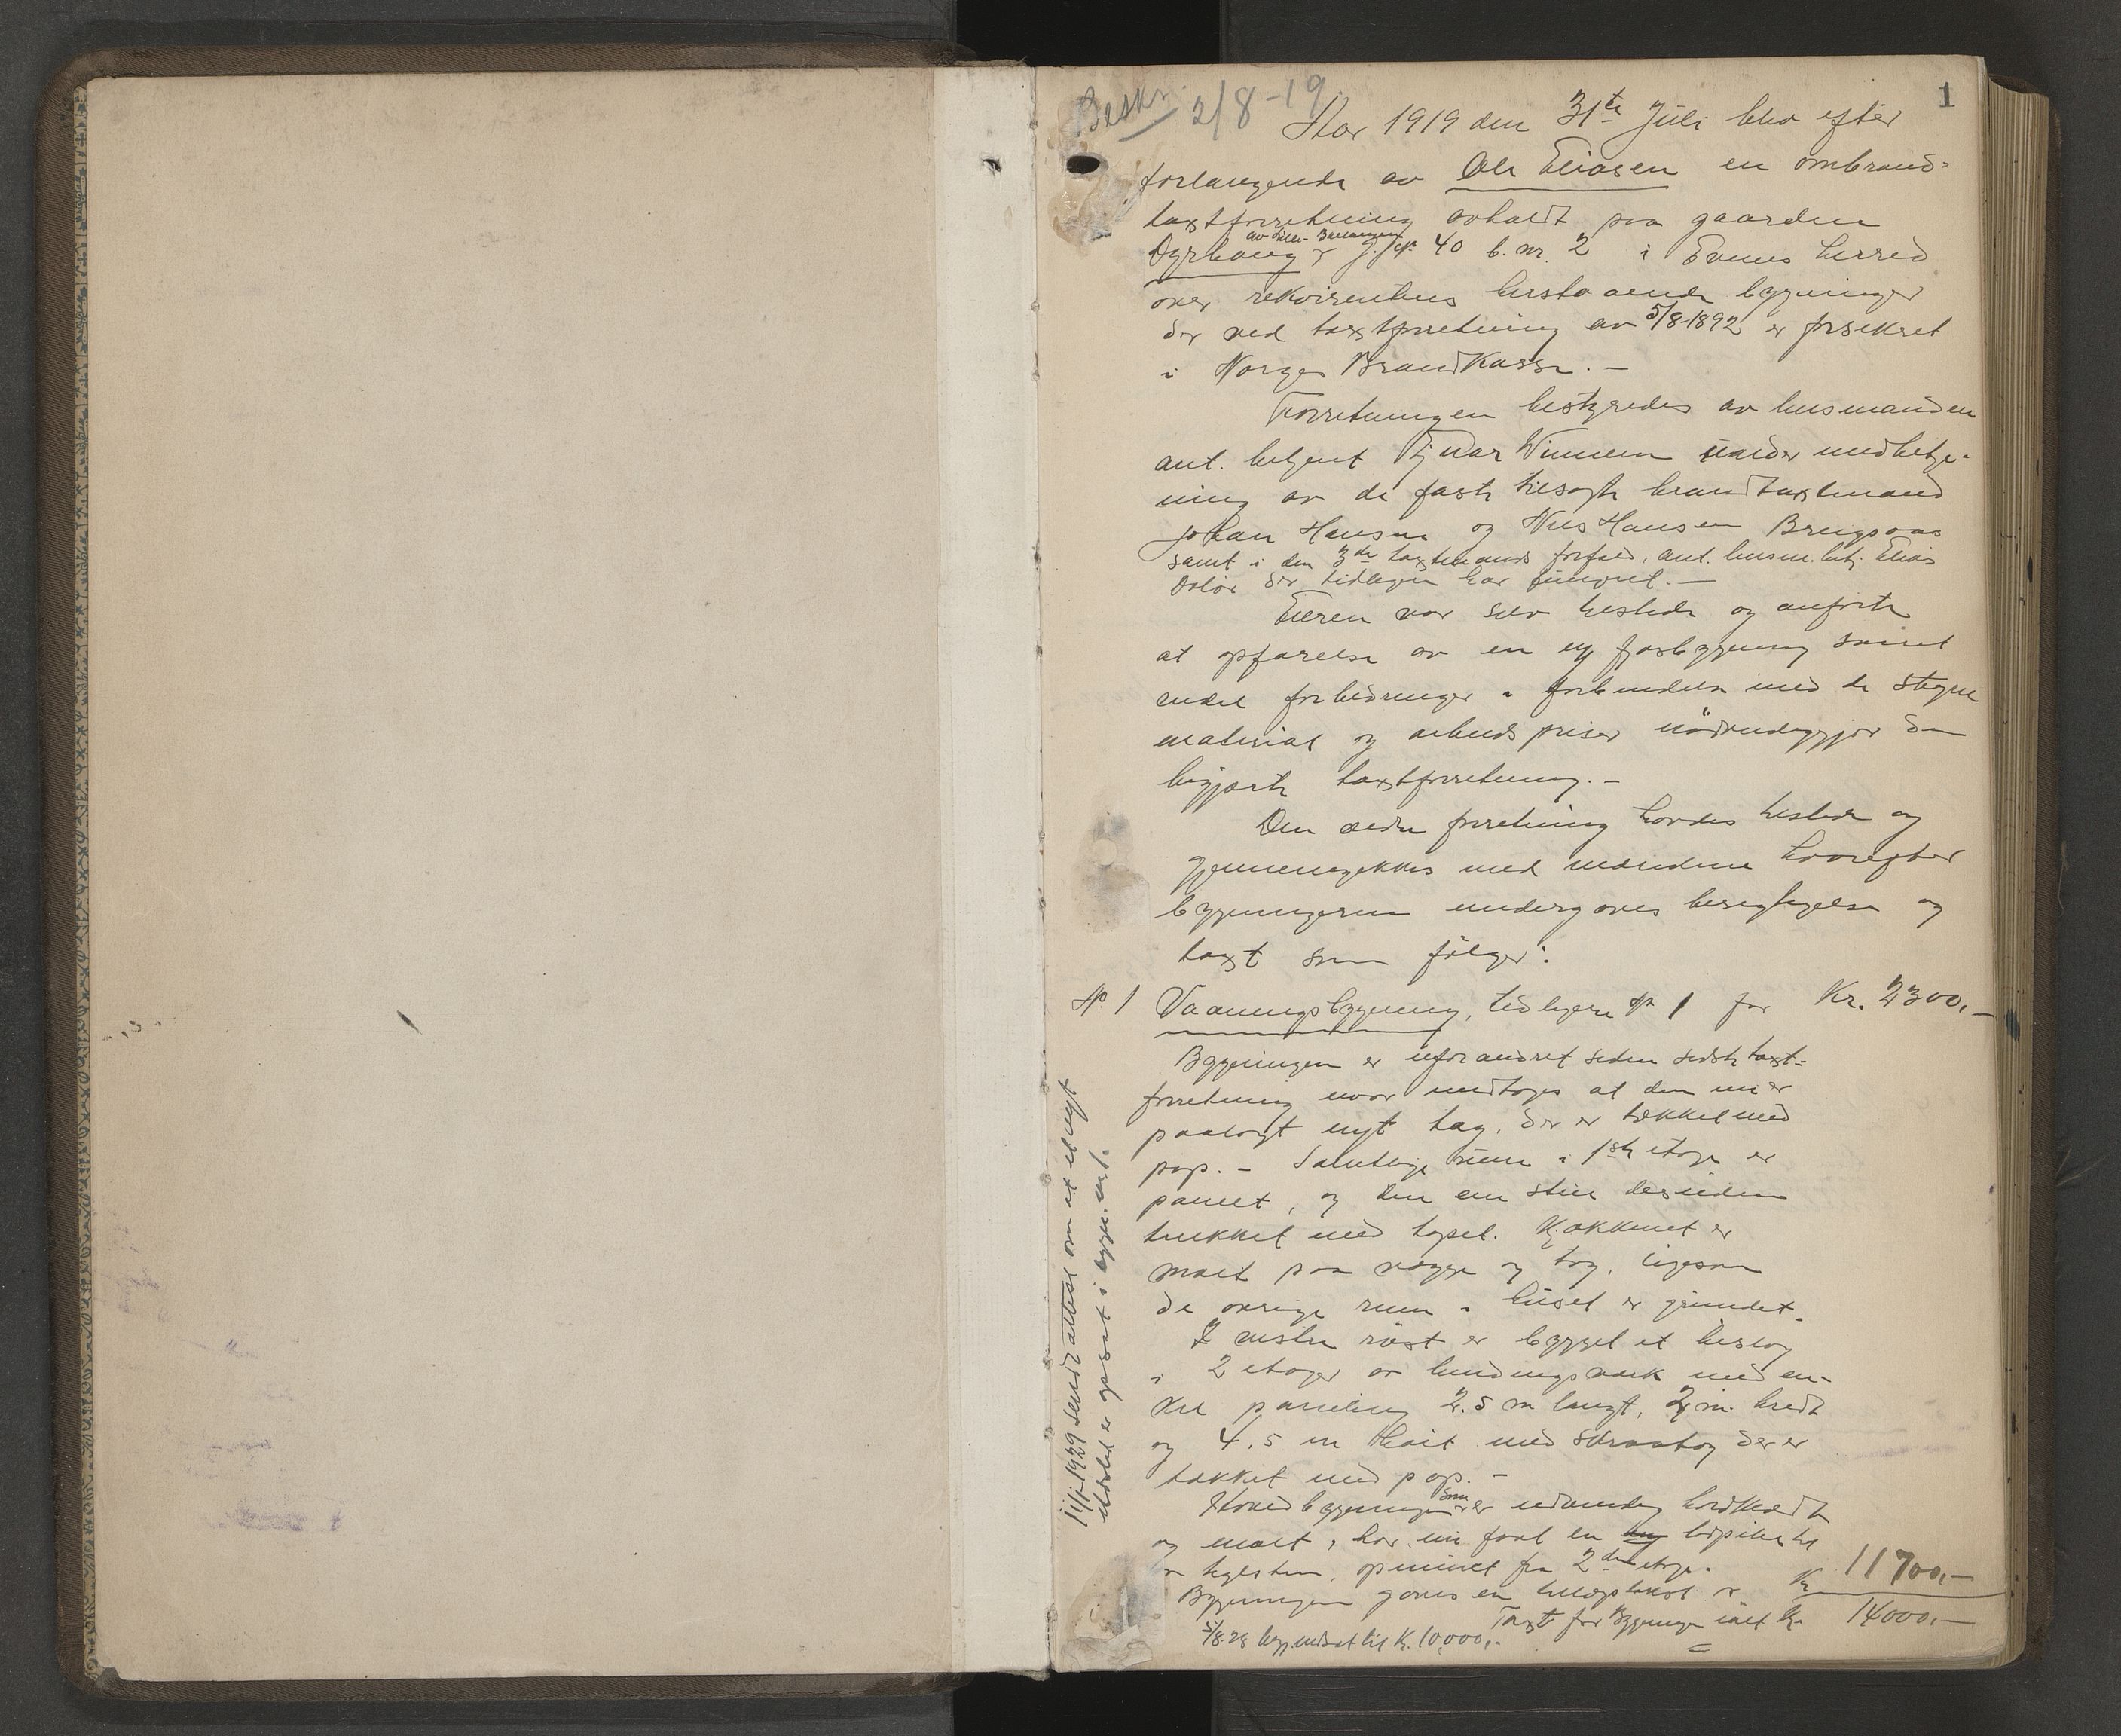 1
Beskr. 2/8-19
Aar 1919 den 31te Juli blev efter
forlangende av Ole Eliasen en ombrand-
taxtforretning avholdt paa gaarden
Dyrhaug av Lille- G. No 40 b. nr. 2 i Evenes herred
over rekvirentens hersteds bygninger
der ved taxtforretning av 5/8-1892 er forsikret
i Norges Brandkasse. -
Forretningen bestyredes av lensmanden
ant. betjent Winnem under medbetje-
ning av de faste tilsagte brandtaxtmænd
Johan Hansen og Nils Hansen
samt i den 3die taxtmands forfald, ant. lensm. betj. Elias
der tidligere har fungert. -
Eieren var selv tilstede og anførte
at opførelse av en ny fjøsbygning samt
endel forbedringer i forbindelse med de stegne
material og arbeidspriser nødvendiggjør den
begjærte taxtforretning. -
Den ældre forretning havdes tilstede og
gjennemgikkes med mændene hvorefter
bygningerne undergaves besigtigelse og
taxt som følger:
No. 1 Vaaningsbygning, tidligere No 1 for Kr. 2300,-
Bygningen er uforandret siden sidste taxt-
forretning naar undtages at den nu er
paalagt nyt tag, der er tækket med
pap. - Samtlige rum i 1ste etage er
panelt, og den ene stue desuden
trukket med tapet. Kjøkkenet er
malt paa vægge og tag, ligesom
de øvrige rum i huset er grundet.
I vestre røst er bygget et bislag
i 2 etager av bindingsverk med en-
kel paneling 2.5 m langt, 2 m. bredt
og 4.5 m høit med skraatag der er
tækket med pap. -
Hovedbygningen som er utvendig bordklædt
og malt, har nu faat en ny
av teglsten, opmuret fra 2den etage.
Bygningen gaves en tillægstakst av Kr. 11700,-
Taxt for Bygningen ialt Kr. 14000,-
5/8.28 byg. nedsat til Kr. 10.000,-
11/1-1929 sendt attest om at et nyt
ildsted er opsat i bygn. nr. 1.